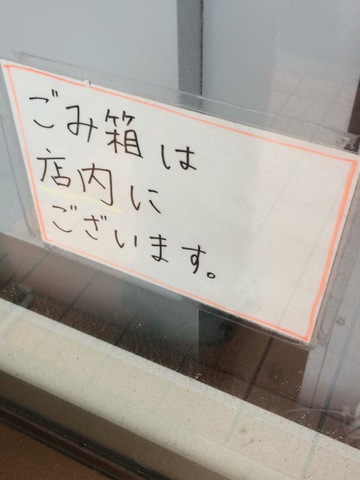 ごみ箱は
店内に
ございます。